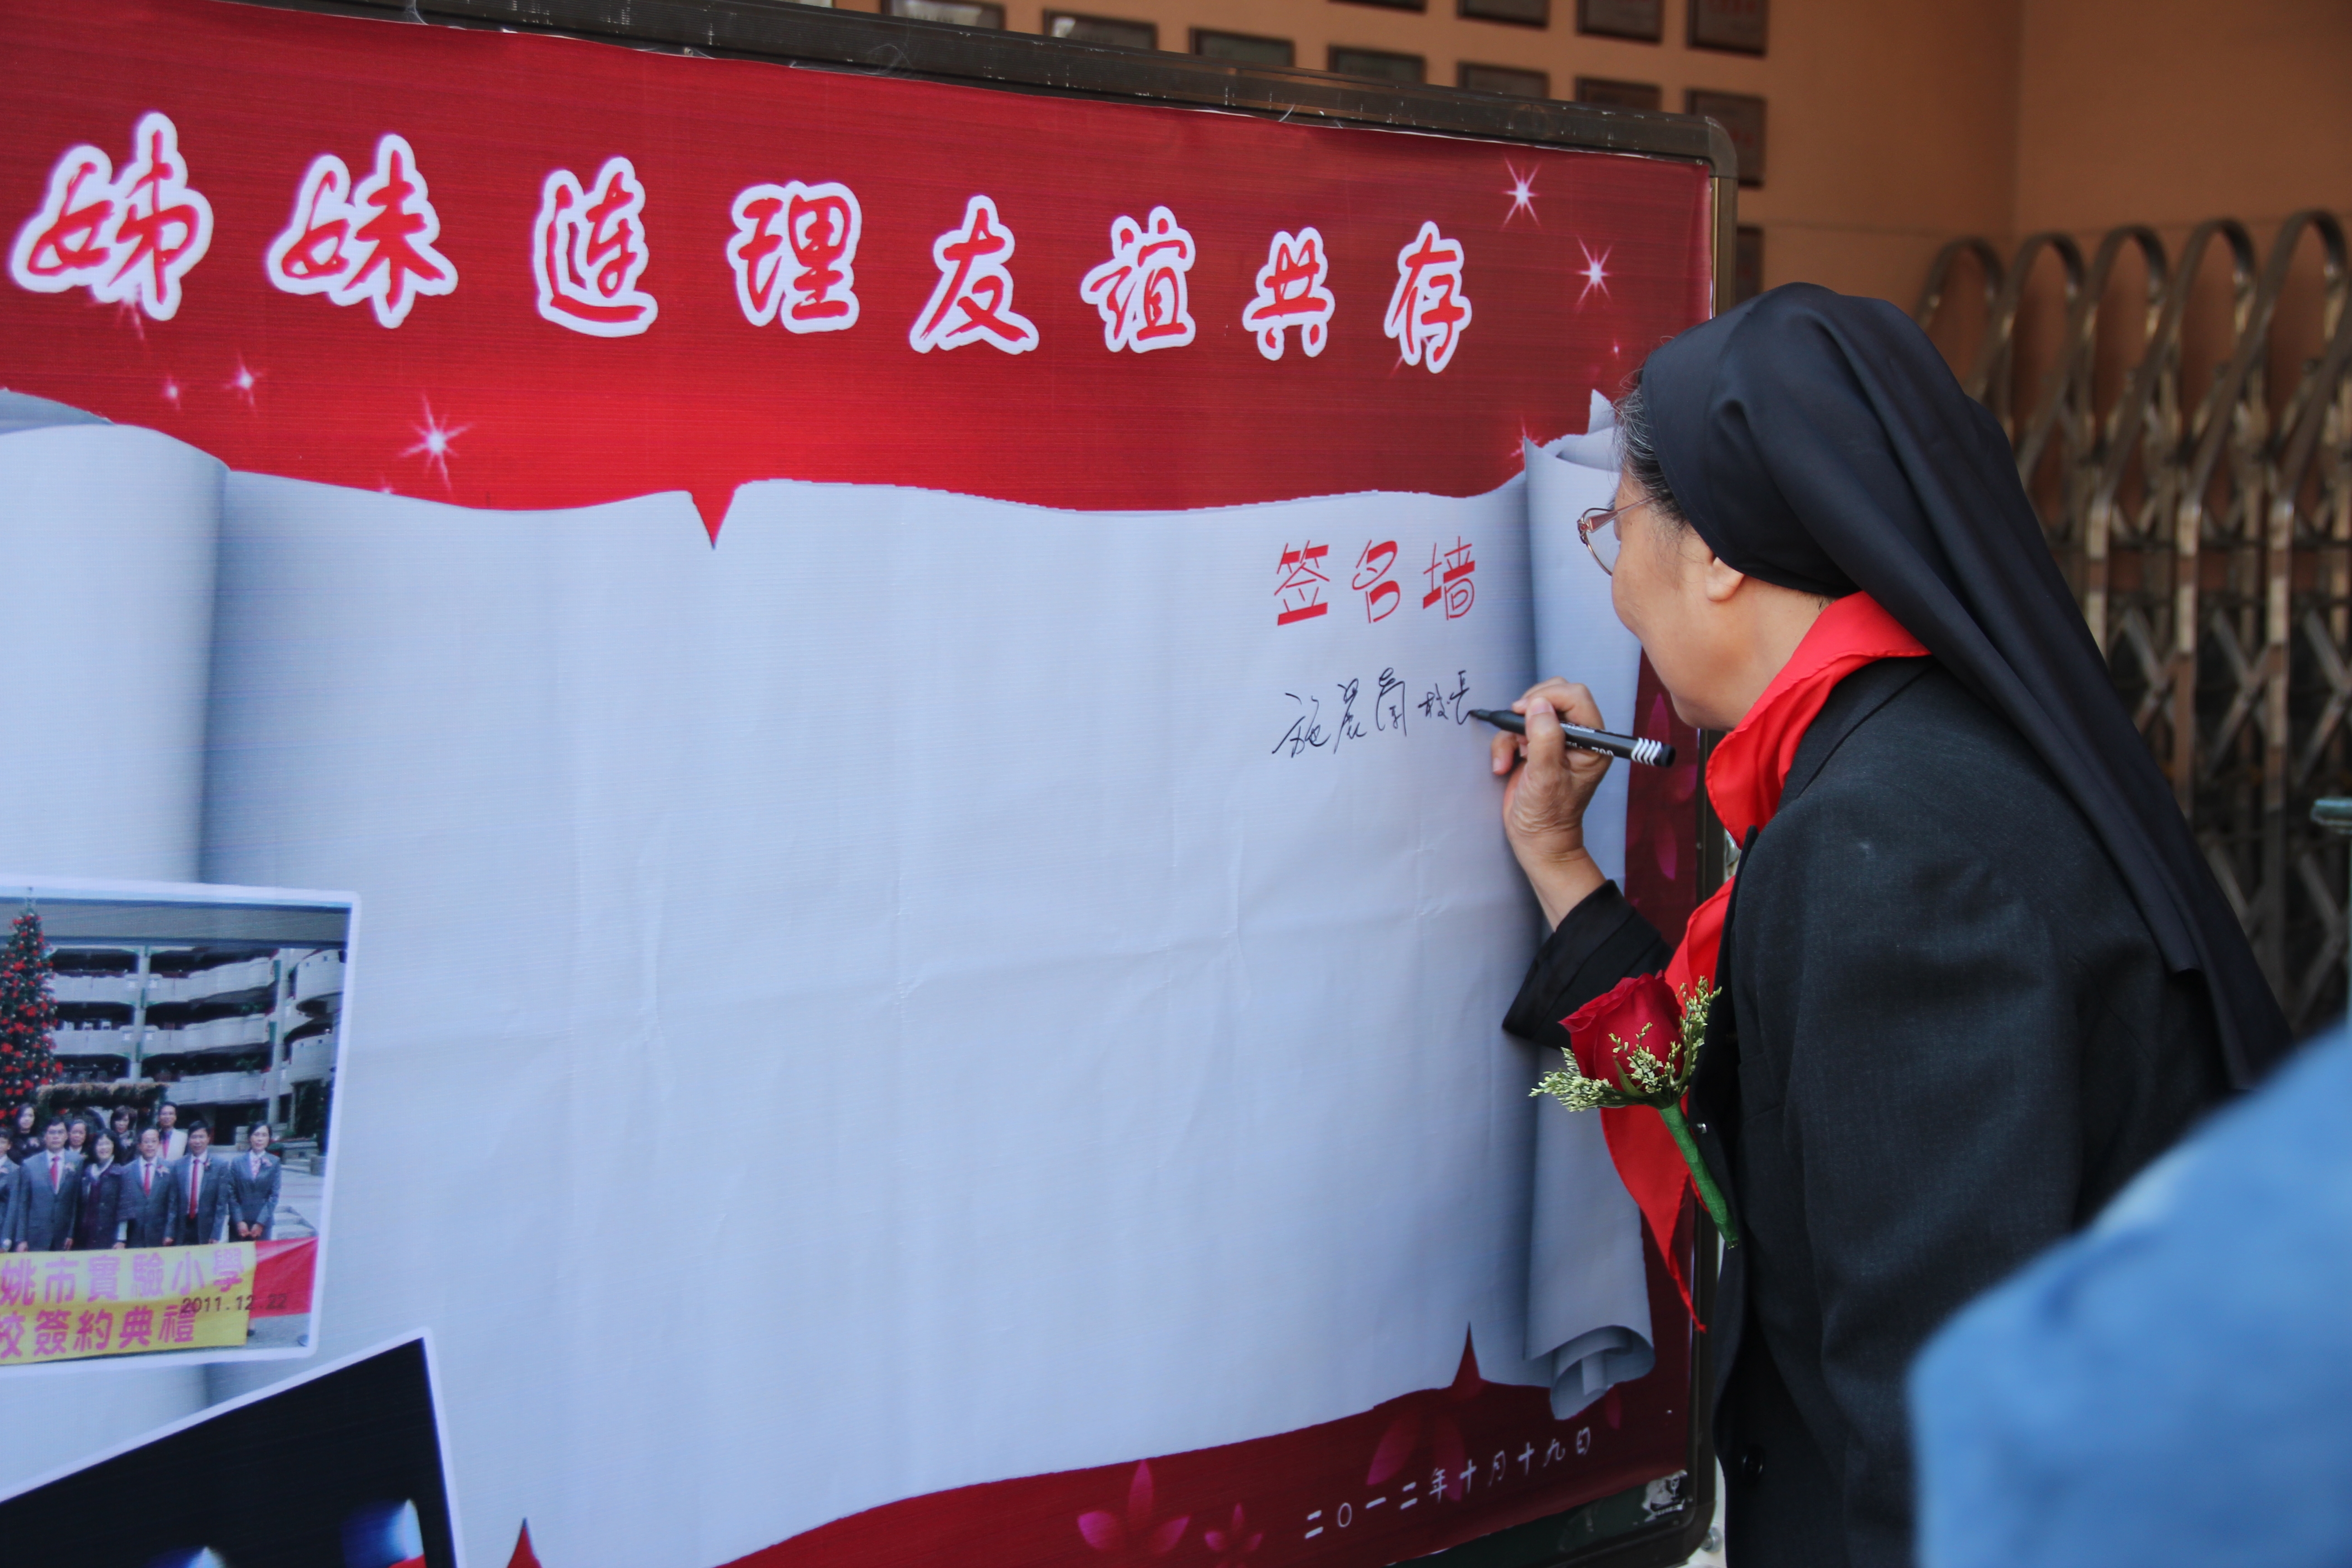 姊妹连理友谊共存
签名墙
施晨阑校长
姚市實驗小學
2011.12.22
校簽約典禮
二〇一二年十月十九日